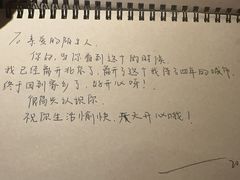 To 亲爱的陌生人
你好,当你看到这个的时候,
我已经离开北京了,离开了这个我待了四年的城市,
终于回到家乡了,好开心呀!
很高兴认识你,
祝你生活愉快,天天开心哦!
20